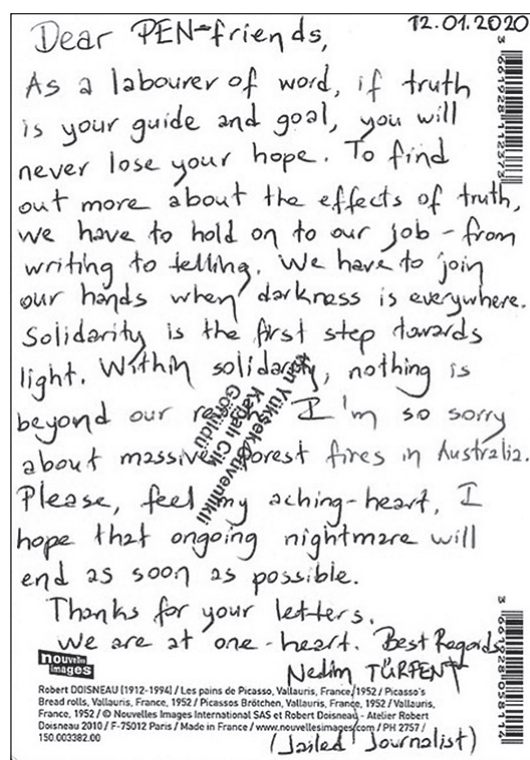 12.01.2020
Dear PEN-friends,
As a labourer of word, if truth
is your guide and goal, you will
never lose your hope. To find
out more about the effects of truth,
we have to hold on to our job - from
writing to telling. We have to join
our hands when darkness is everywhere.
Solidarity is the first step towards
light. Within solidarity, nothing is
beyond our I'm so sorry
about massive forest fires in Australia.
Please, feel my aching-heart. I
hope that ongoing nightmare will
end as soon as possible.
Thanks for your letters.
We are at one-heart. Best Regards
Nedim TÜRFENT
(Jailed Journalist)
Van Yüksek Güvenlikli
Kapalı Cik
Görüldü
nouvelles
images
Robert DOISNEAU (1912-1994) / Les pains de Picasso, Vallauris, France, 1952 / Picasso's
Bread rolls, Vallauris, France, 1952 / Picassos Brötchen, Vallauris, France, 1952 / Vallauris,
France, 1952 / © Nouvelles Images International SAS et Robert Doisneau - Atelier Robert
Doisneau 2010 / F-75012 Paris / Made in France / www.nouvellesimages.com / PH 2757 /
150.003382.00
3 661928 112373
3 661928 058114